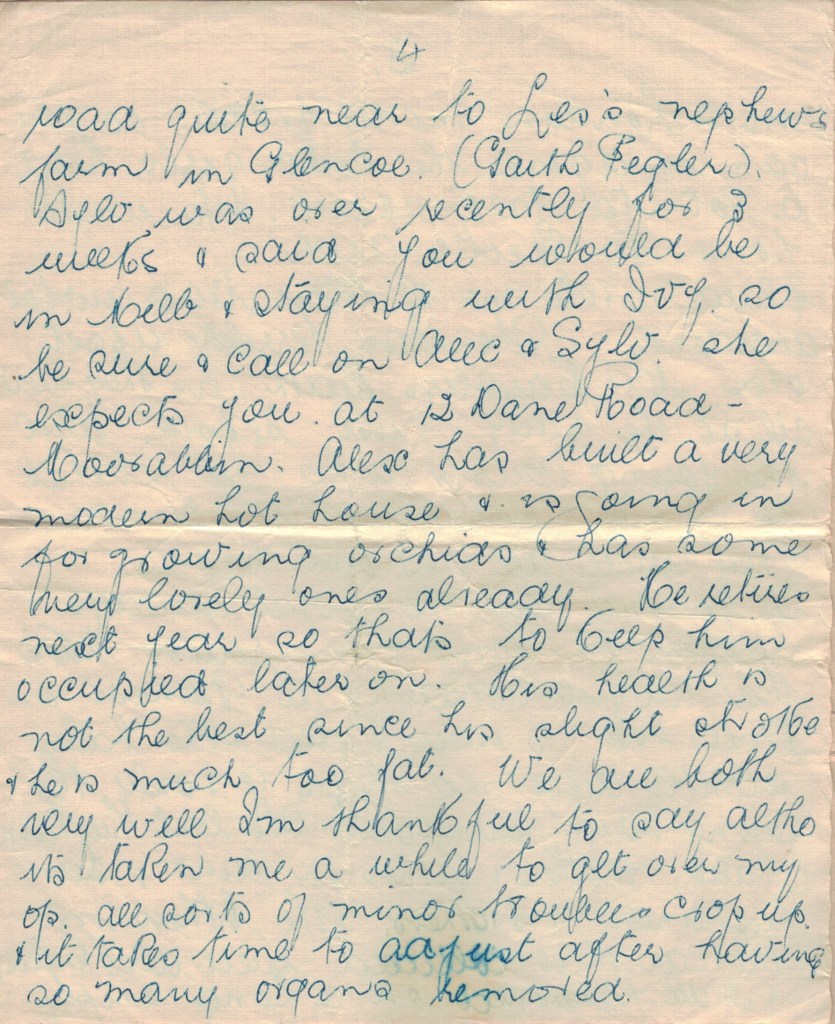 4
road quite near to Les's nephews
farm in Glencoe. (Garth Pegler).
Sylv was over recently for 3
weeks & said you would be
in Melb & staying with Ivy, so
be sure & call on Alec & Sylv. she
expects you. at 12 Dane Road -
Moorabbin. Alex has built a very
modern hot house & is going in
for growing orchids & has some
very lovely ones already. He retires
next year so thats to keep him
occupied later on. His health is
not the best since his slight stroke
& he is much too fat. We are both
very well I'm thankful to say altho
its taken me a while to get over my
op. all sorts of minor troubles crop up.
& it takes time to adjust after having
so many organs removed.